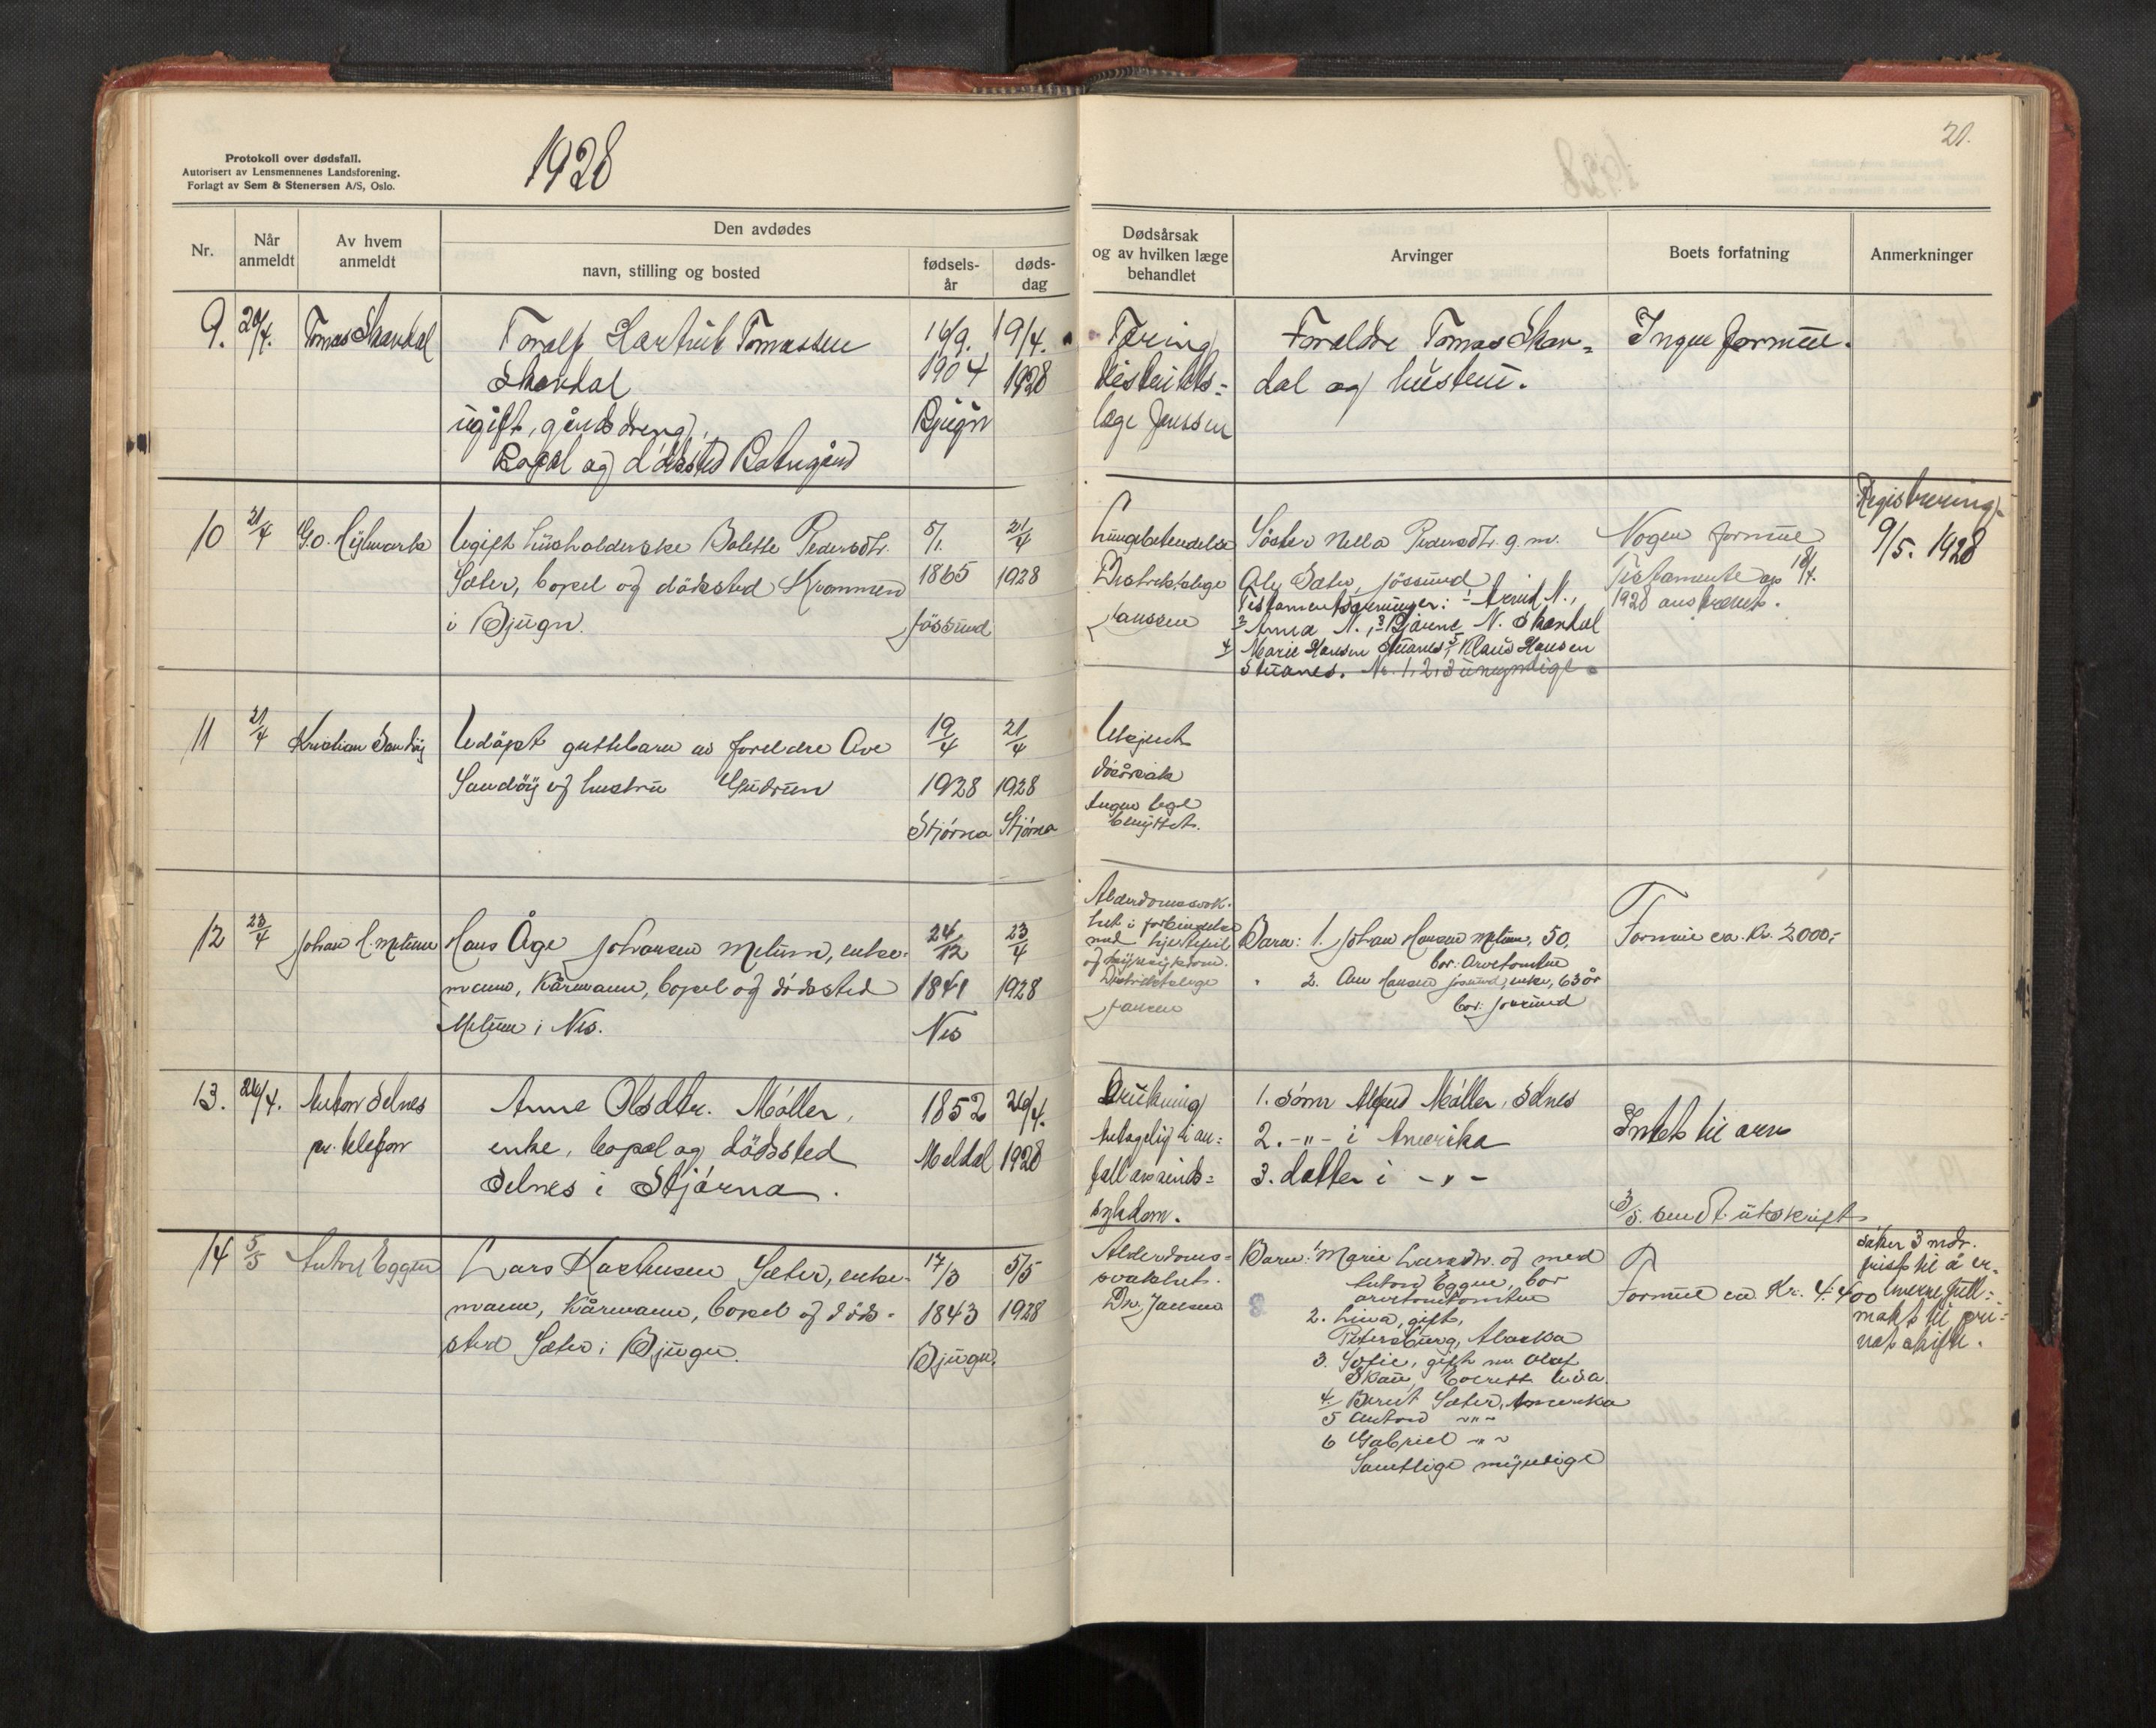 Protokoll over dødsfall.
Autorisert av Lensmennenes Landsforening.
Forlagt av Sem & Stenersen A/S, Oslo.
1928
21.
Nr.
Når anmeldt
Av hvem anmeldt
Den avdødes
navn, stilling og bosted
fødsels-år
døds-dag
Dødsårsak
og av hvilken læge
behandlet
Arvinger
Boets forfatning
Anmerkninger
9. 20/4. Tomas Skavdal
Toralf Hartvik Tomassen
Skavdal
ugift, gårdsdreng,
Bopel og dødssted Botngård
16/9. 1904
Bjugn
19/4. 1928
Tæring
distrikts=
læge Janssen
Foreldre Tomas Skav=
dal og hustru.
Ingen formue.
10 21/4
Ugift husholderske Bolette Pedersdtr.
Sæter, bopel og dödssted Kvammen
i Bjugn.
5/1. 1865
Jössund
21/4 1928
Lungebetendelse
Distriktslæge
Janssen
Söster Nella Pedersdtr. g. m.
Ole Sæter, Jössund
Testamentsarvinger: 1 Arvid N.,
2 Anna N., 3 Bjarne N. Skavdal
4 Marie Hansen Stuanes, 5 Klaus Hansen
Stuanes. Nr. 1, 2, 3 umyndige
Nogen formue
Testamente av 18/4.
1928
Registrering
9/5. 1928
11 21/4 Kristian Sandöy
Udöpt guttebarn av foreldre Ove
Sandöy og hustru Gudrun
19/4 1928
Stjørna
21/4 1928
Stjørna
Ukjent
dödsårsak
Ingen lege
benyttet.
12 23/4 Johan H. Metun
Hans Åge Johansen Metun, enke-
mann, kårmann, bopel og dödssted
Metun i Nes.
24/12 1841
Nes
23/4 1928
Alderdomssvak-
het i forbindelse
med hjertefeil
og
Distriktslege
Jansen
Barn: 1. Johan Hansen Metun, 50,
bor: Arvetomten
" 2. Ane Hansen Jössund, enke, 63 år
bor: Jössund
Formue ca. Kr. 2000,-
13. 26/4. Anton Selnes
pr. telefon
Anne Olsdtr. Møller,
enke, bopæl og dödssted
Selnes i Stjørna.
1852
Meldal
26/4. 1928
Drukning
Antagelig i an=
fall av sinds=
sykdom.
1. sönn Alfred Møller, Selnes
2. -"- i Amerika
3. datter i -"-
Intet til arv
3/5. sendt utskrift
14 5/5 Anton Eggen
Lars Rasmusen Sæter, enke-
mann, kårmann, bopel og död-
sted Sæter i Bjugn.
17/3 1843
Bjugn.
5/5 1928
Alderdoms=
svakhet.
Dr. Jansen
Barn: 1 Marie Larsdtr. g. med
Anton Eggen, bor
arvetomten
2. Lina, gift,
Petersburg, Alaska
3. Sofie, gift m. Olaf
Skau, Everett U.S.A.
4. Bernt Sæter, Amerika
5 Anton -"-
6 Gabriel -"-
Samtlige myndige
Formue ca. Kr. 4.400
söker 3 mdr.
frist til å er-
hverve full=
makt til pri-
vat skifte.